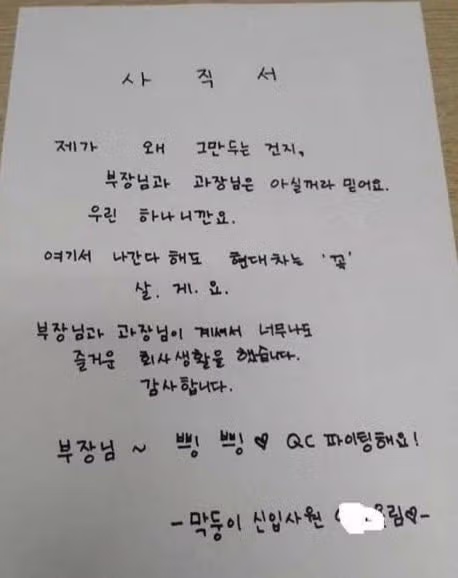 사 직 서
제가 왜 그만두는 건지,
부장님과 과장님은 아실꺼라 믿어요.
우린 하나니깐요.
여기서 나간다 해도 현대차는 '꼭'
살. 게. 요.
부장님과 과장님이 계셔서 너무나도
즐거운 회사생활을 했습니다.
감사합니다.
부장님 ~ 쁘잉 쁘잉 ♡ QC 파이팅해요!
- 막둥이 신입사원 림♡-